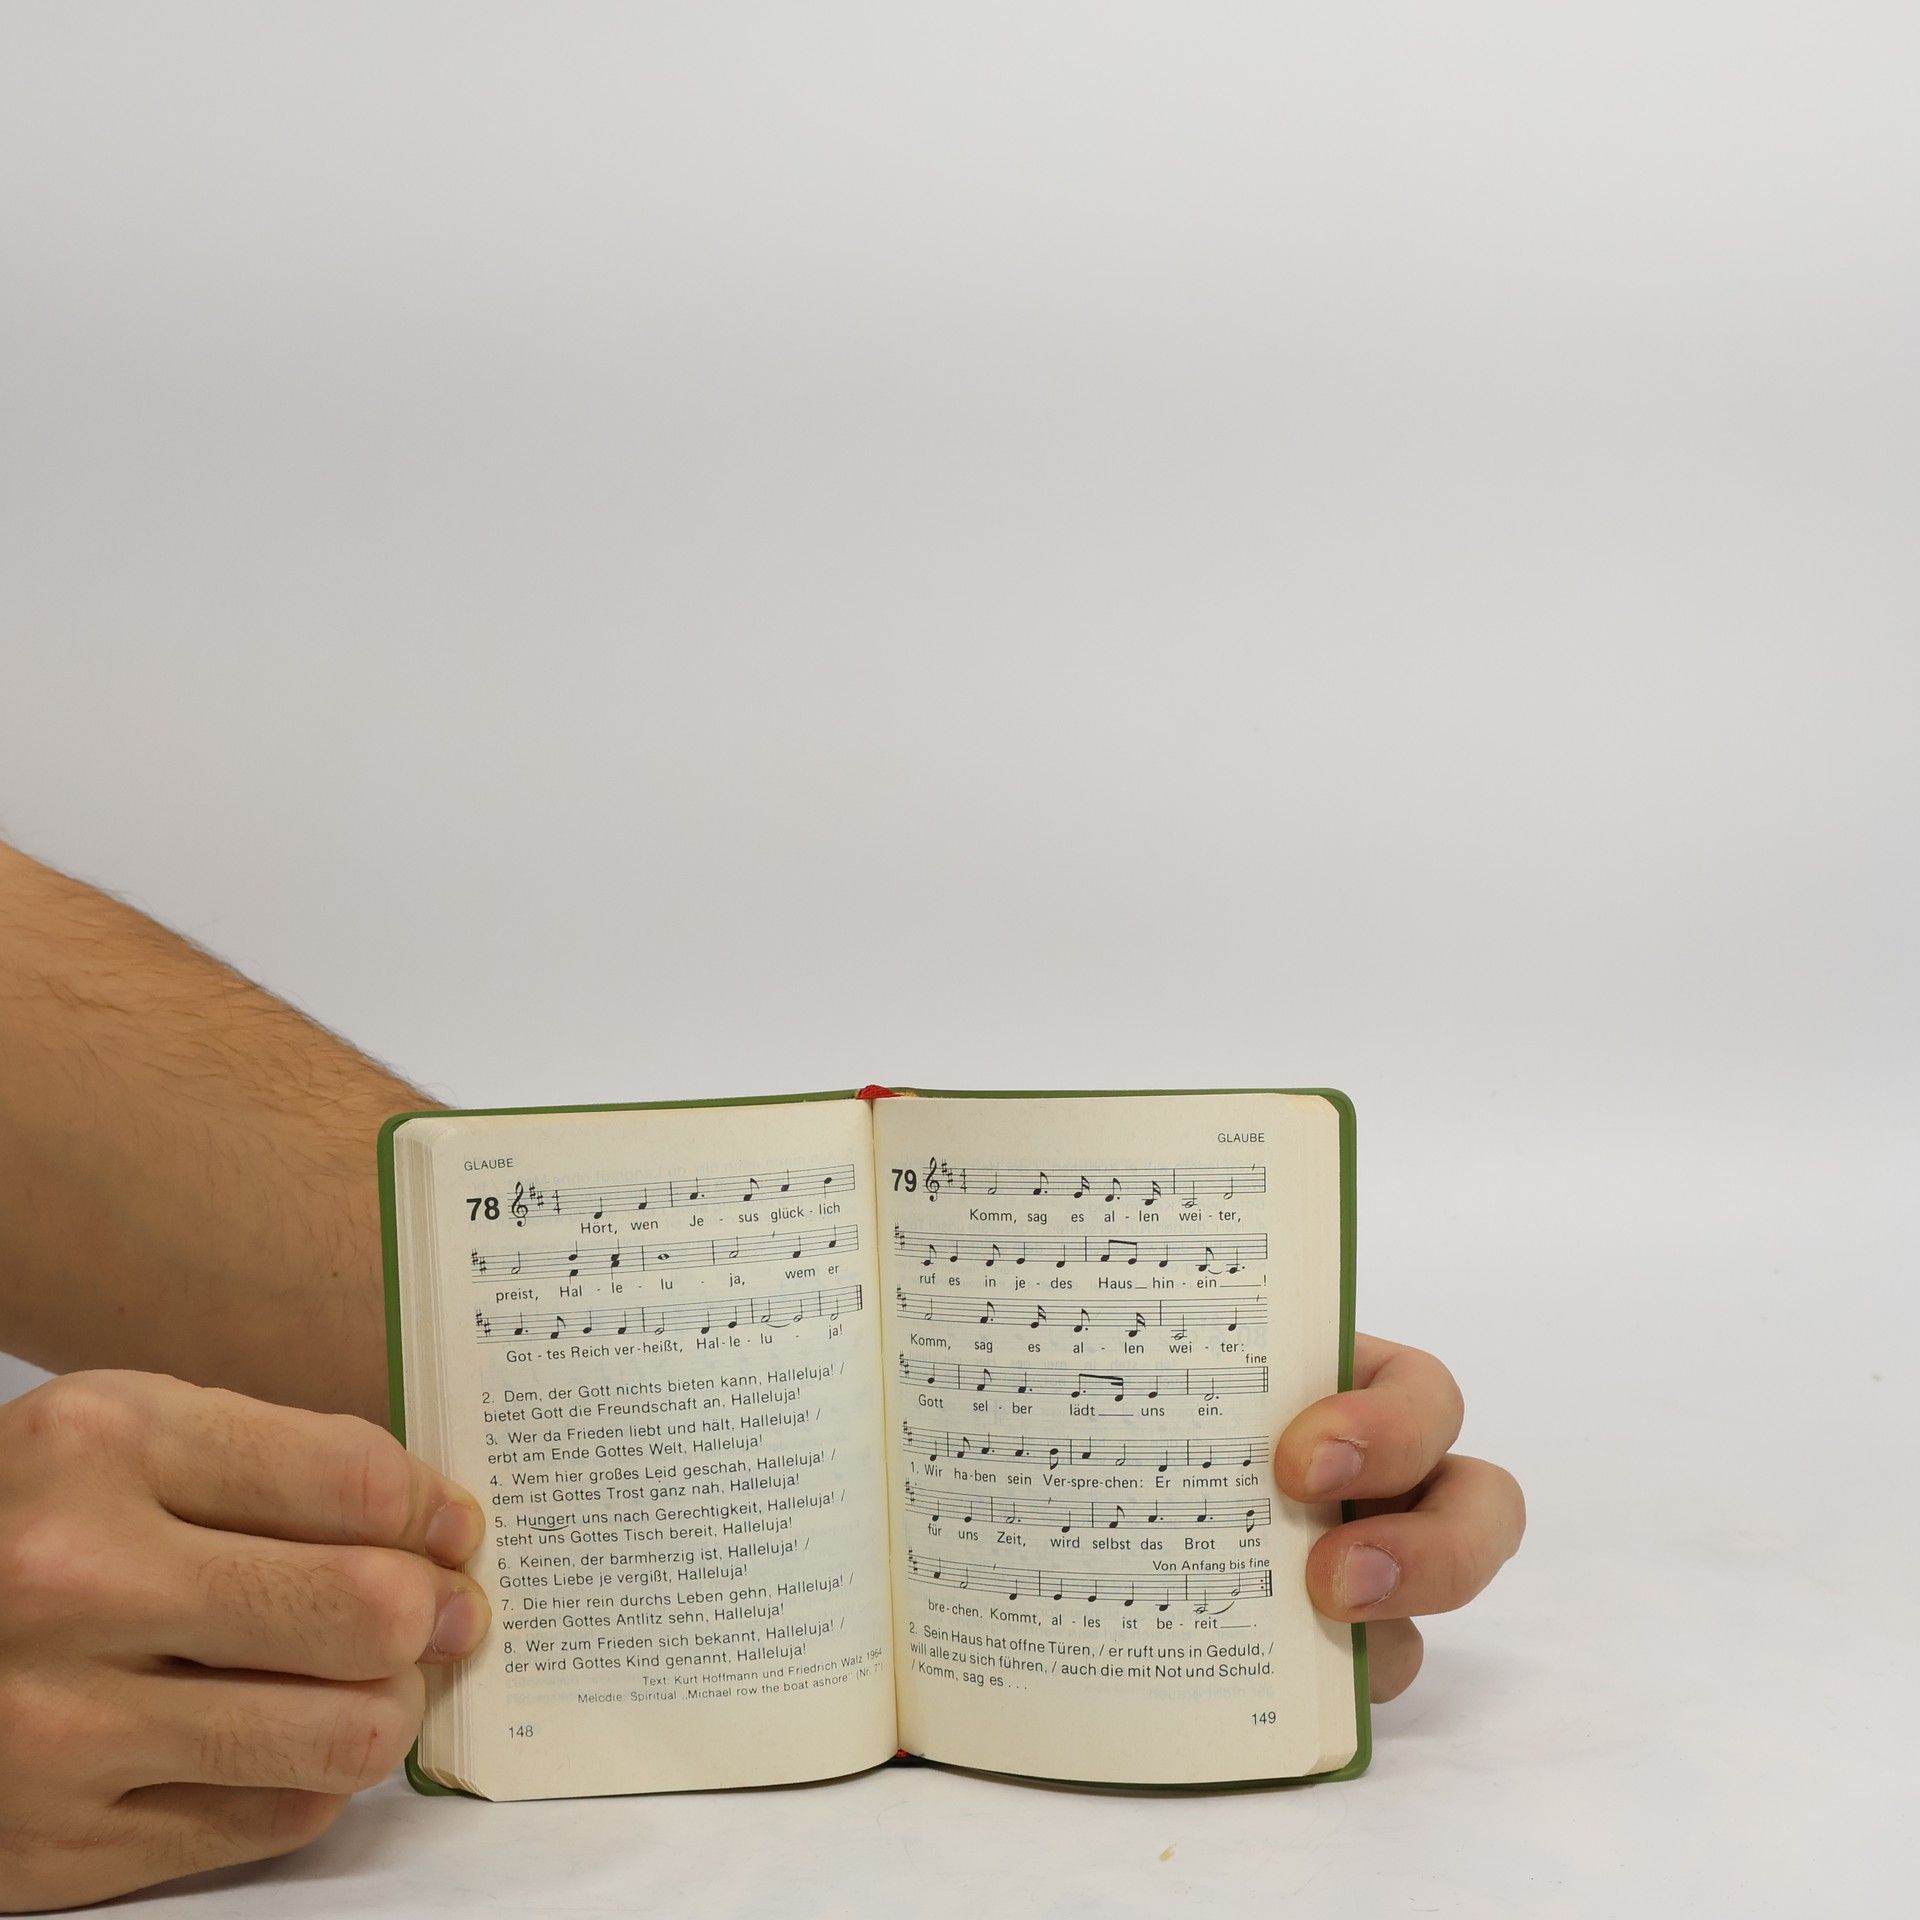 GLAUBE
78
Hört, wen Je - sus glück - lich
preist, Hal - le - lu - ja, wem er
Got - tes Reich ver - heißt, Hal - le - lu - ja!
2. Dem, der Gott nichts bieten kann, Halleluja! /
bietet Gott die Freundschaft an, Halleluja!
3. Wer da Frieden liebt und hält, Halleluja! /
erbt am Ende Gottes Welt, Halleluja!
4. Wem hier großes Leid geschah, Halleluja! /
dem ist Gottes Trost ganz nah, Halleluja!
5. Hungert uns nach Gerechtigkeit, Halleluja! /
steht uns Gottes Tisch bereit, Halleluja!
6. Keinen, der barmherzig ist, Halleluja! /
Gottes Liebe je vergißt, Halleluja!
7. Die hier rein durchs Leben gehn, Halleluja! /
werden Gottes Antlitz sehn, Halleluja!
8. Wer zum Frieden sich bekannt, Halleluja! /
der wird Gottes Kind genannt, Halleluja!
Text: Kurt Hoffmann und Friedrich Walz 1964
Melodie: Spiritual „Michael row the boat ashore" (Nr. 7*)
148
GLAUBE
79
Komm, sag es al - len wei - ter,
ruf es in je - des Haus hin - ein !
Komm, sag es al - len wei - ter:
fine
Gott sel - ber lädt uns ein.
1. Wir ha - ben sein Ver - spre - chen: Er nimmt sich
für uns Zeit, wird selbst das Brot uns
Von Anfang bis fine
bre - chen. Kommt, al - les ist be - reit .
2. Sein Haus hat offne Türen, / er ruft uns in Geduld, /
will alle zu sich führen, / auch die mit Not und Schuld.
/ Komm, sag es . . .
149